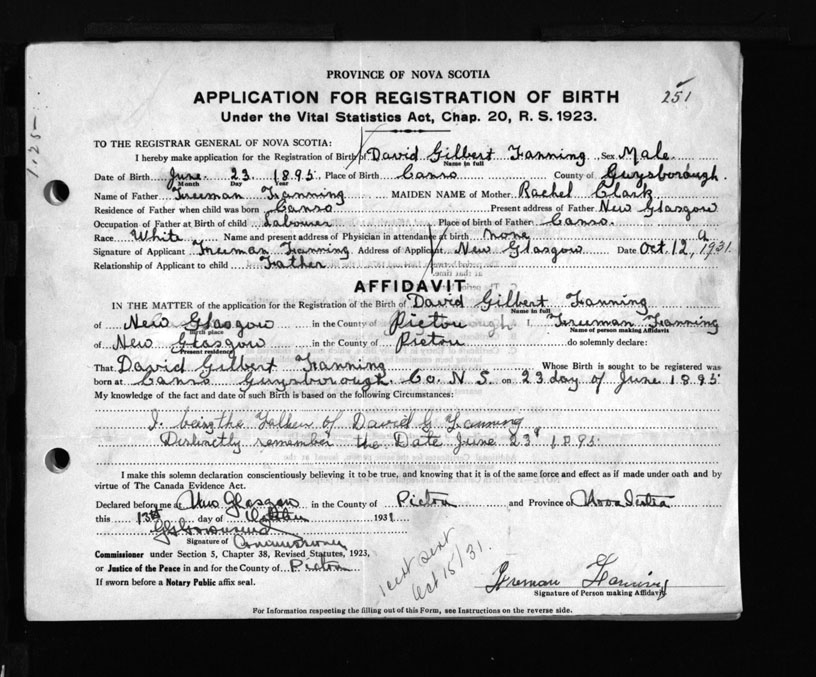 PROVINCE OF NOVA SCOTIA
APPLICATION FOR REGISTRATION OF BIRTH
251
Under the Vital Statistics Act, Chap. 20, R. S. 1923.
1.25-
TO THE REGISTRAR GENERAL OF NOVA SCOTIA:
I hereby make application for the Registration of Birth of David Gilbert Fanning Sex Male
Name in full
Date of Birth June 23 1895 Place of Birth Canso County of Guysborough
Month Day Year
Name of Father Freeman Fanning MAIDEN NAME of Mother Rachel Clark
Residence of Father when child was born Canso Present address of Father New Glasgow
Occupation of Father at Birth of child Labourer Place of birth of Father Canso
Race White Name and present address of Physician in attendance at birth none
Signature of Applicant Freeman Fanning Address of Applicant New Glasgow Date Oct. 12, 1931.
Relationship of Applicant to child Father
AFFIDAVIT
IN THE MATTER of the application for the Registration of the Birth of David Gilbert Fanning
Name in full
of New Glasgow in the County of Pictou I, Freeman Fanning
Birth place Name of person making Affidavit
of New Glasgow in the County of Pictou do solemnly declare:
Present residence
That David Gilbert Fanning Whose Birth is sought to be registered was
born at Canso Guysborough Co. N S. on 23 day of June 1895
My knowledge of the fact and date of such Birth is based on the following Circumstances:
I being the Father of David G Fanning
Distinctly remember the Date June 23d 1895
I make this solemn declaration conscientiously believing it to be true, and knowing that it is of the same force and effect as if made under oath and by
virtue of The Canada Evidence Act.
Declared before me at New Glasgow in the County of Pictou and Province of Nova Scotia
this 13th day of October 1931
Signature of Commissioner
Commissioner under Section 5, Chapter 38, Revised Statutes, 1923,
or Justice of the Peace in and for the County of Pictou
If sworn before a Notary Public affix seal.
sent
Oct 15/31.
Freeman Fanning
Signature of Person making Affidavit
For Information respecting the filling out of this Form, see Instructions on the reverse side.